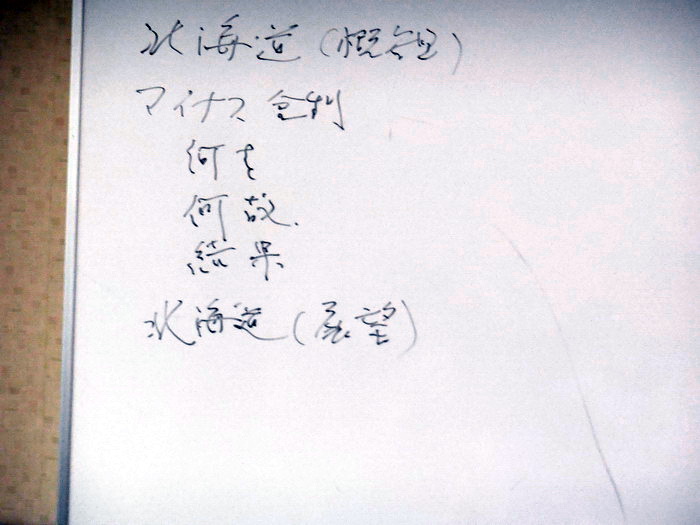 北海道(概観)
マイナス金利
何を
何故
結果
北海道(展望)